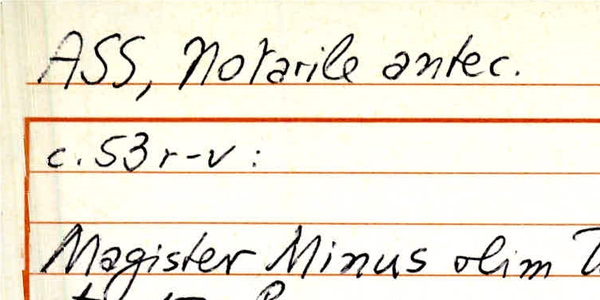 ASS, Notarile antec.
c. 53 r-v :
Magister Minus olim